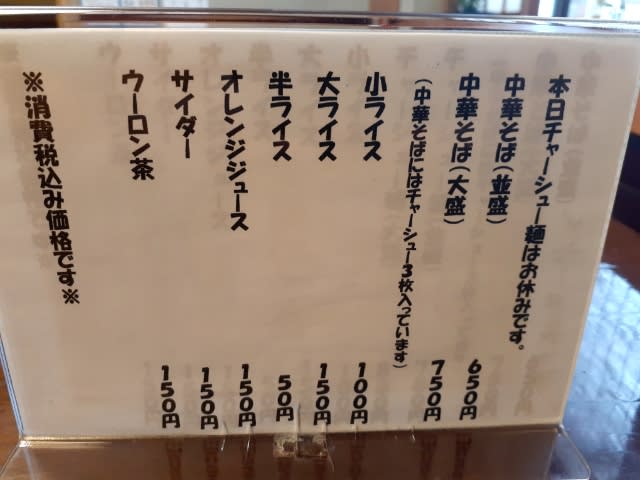 本日チャーシュー麺はお休みです。
中華そば(並盛) 650円
中華そば(大盛) 750円
(中華そばにはチャーシュー3枚入っています)
小ライス 100円
大ライス 150円
半ライス 50円
オレンジジュース 150円
サイダー 150円
ウーロン茶 150円
※消費税込み価格です※